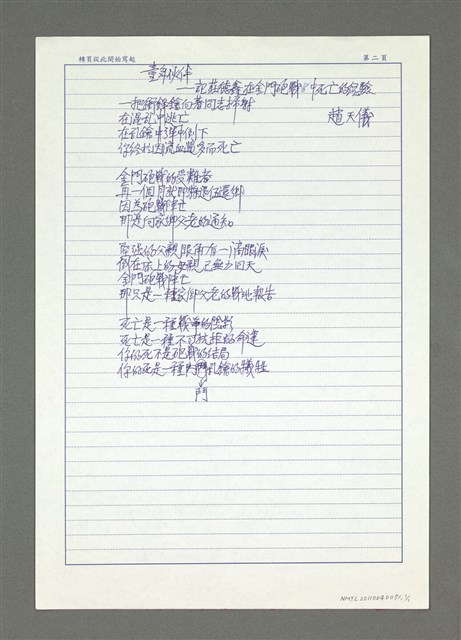 轉頁從此開始寫起
第二頁
童年伙伴
——記莊德鑫在金門砲戰中死亡的經驗
趙天儀
一把衝鋒鎗向著同志掃射
在混乱中逃亡
在乱鎗中彈中倒下
你終於因流血過多而死亡
金門砲戰的受難者
再一個月就即將退伍還鄉
因為砲戰陣亡
那是向家鄉父老的通知。
堅強的父親眼角有一滴眼淚
倒在床上的母親已無力回天
金門砲戰陣亡
那只是一種家鄉父老的戰地報告
死亡是一種戰爭的陰影
死亡是一種不可抗拒的命運
你的死不是砲戰的結局
你的死是一種內鬥乱鎗的犧牲
鬥
NMTL20110270071, 1/1